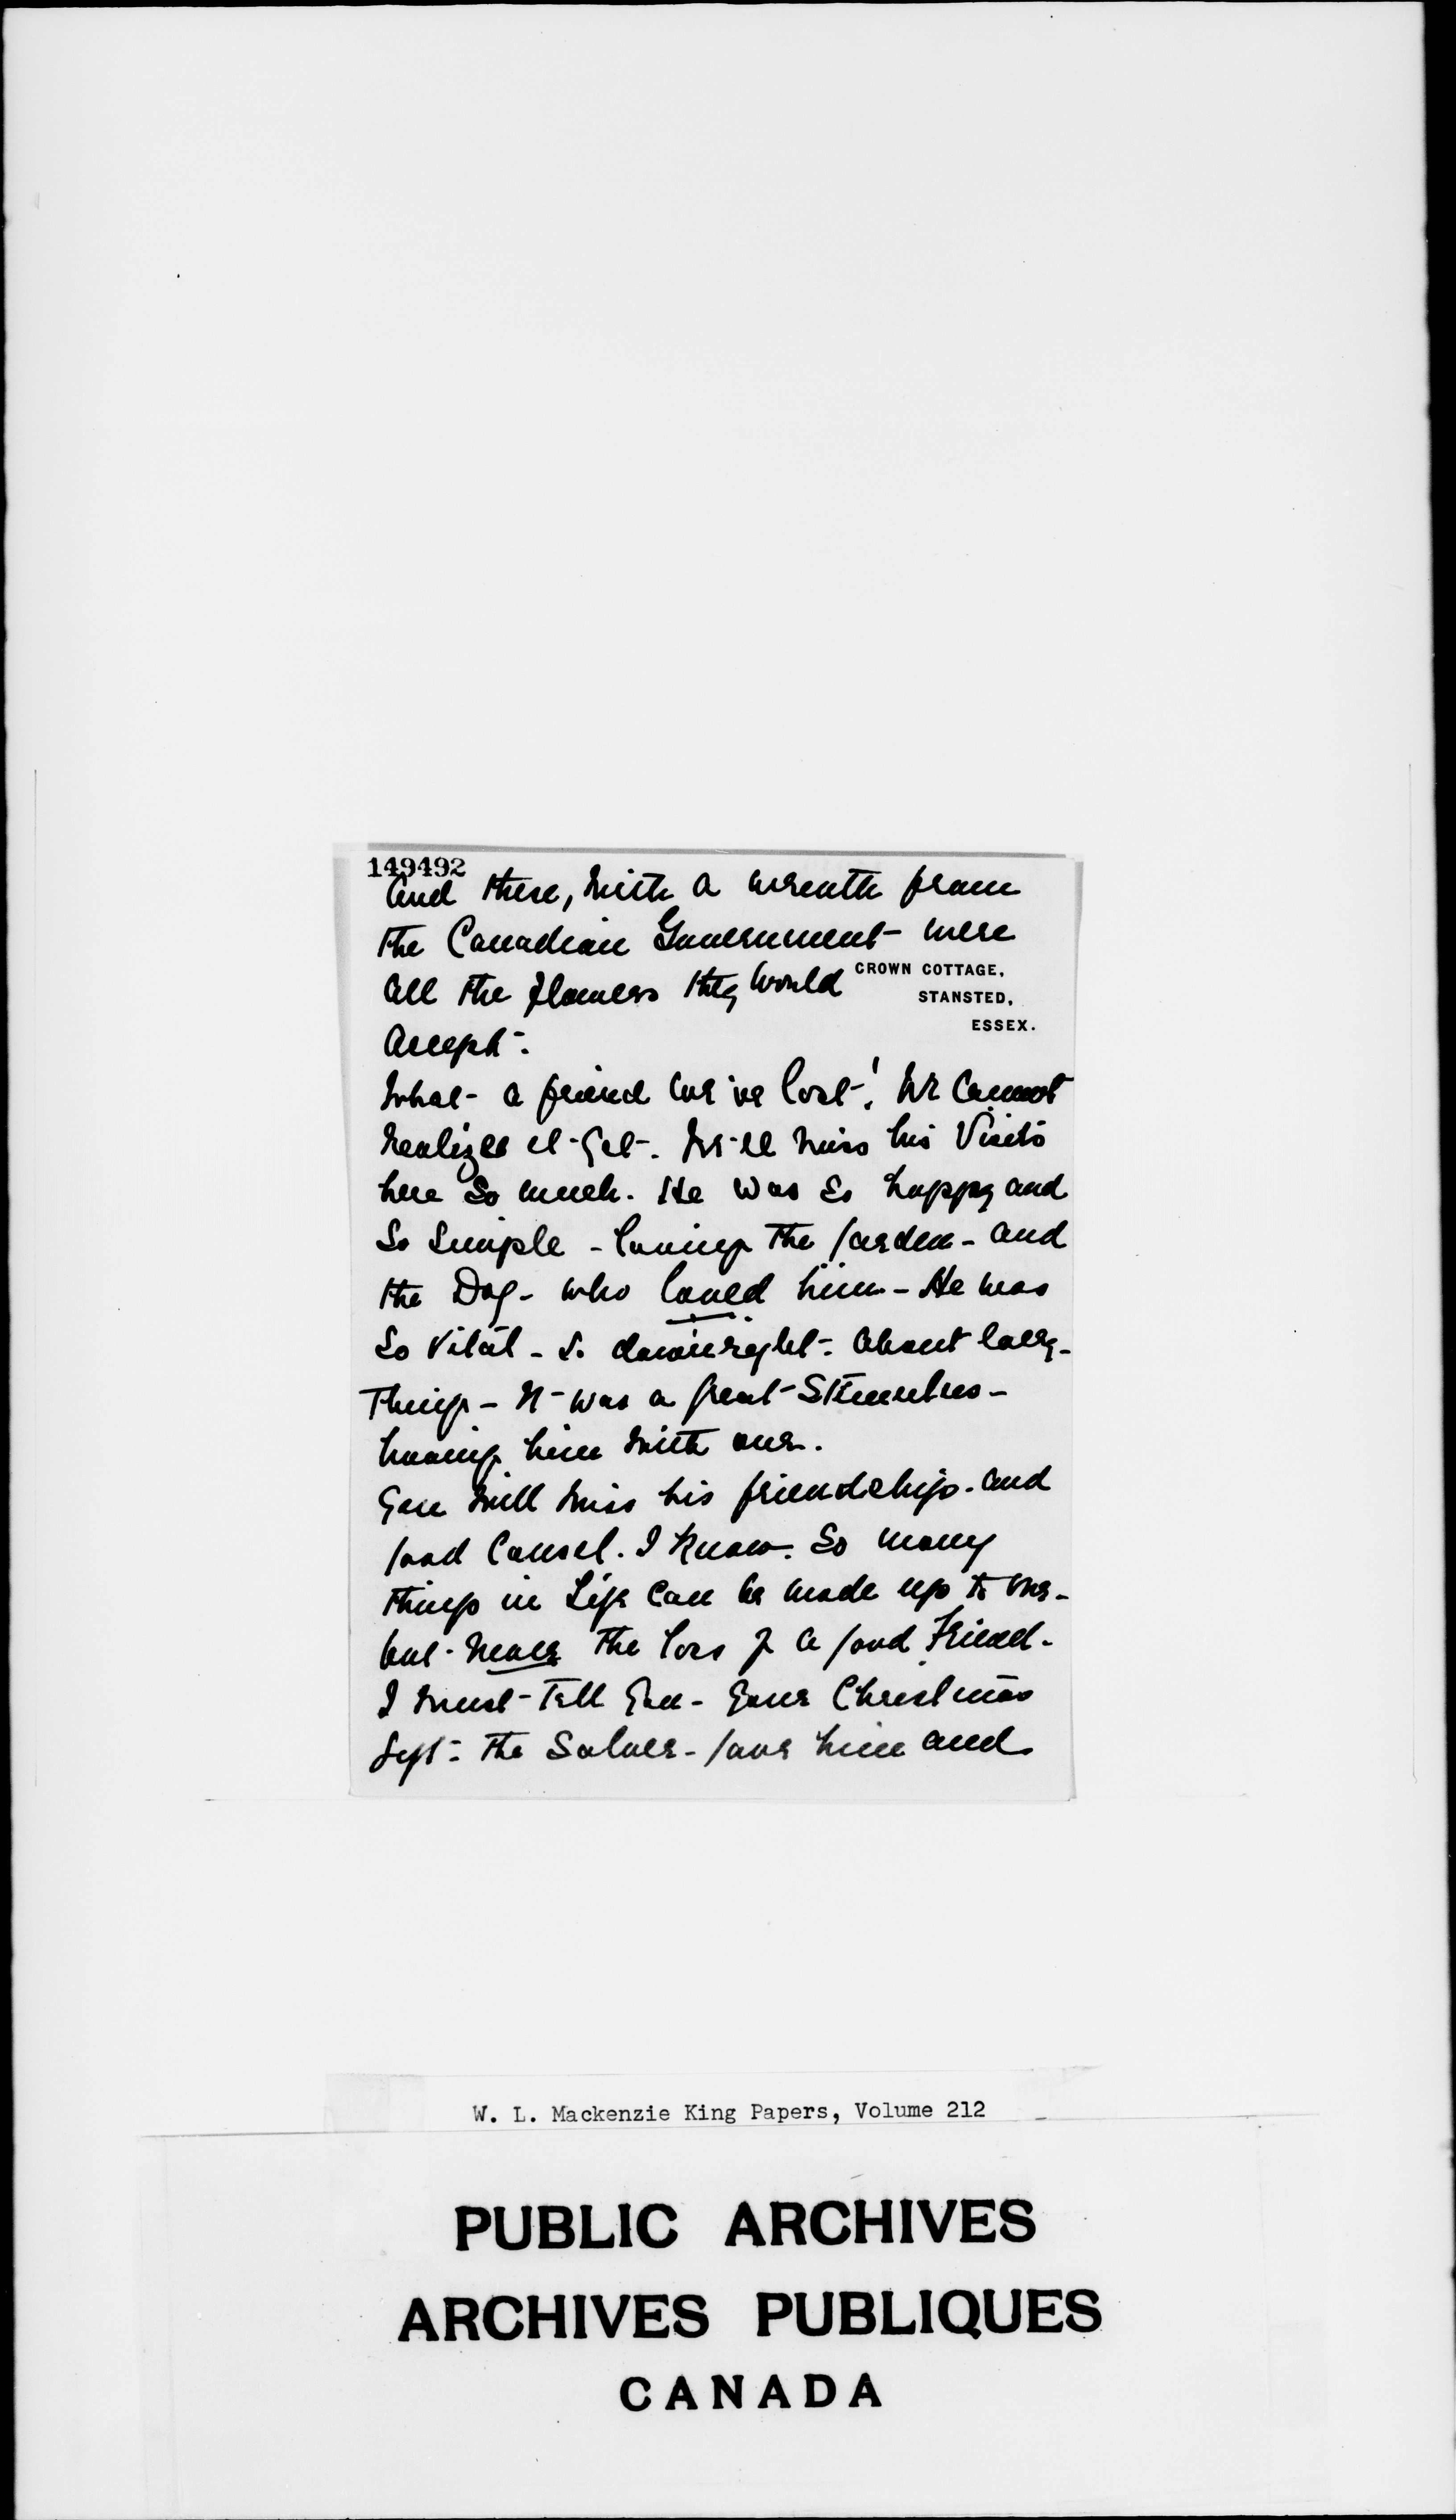 149492
and these, with a wreath from
the Canadian Government - were
all the flowers they would
CROWN COTTAGE,
STANSTED,
ESSEX.
accept -.
What - a friend we've lost -! We cannot
realize it - yet -. We'll miss his Visits
here so much. He was so happy and
so simple - loving the garden - and
the Dog - who loved him - He was
so vital - so downright - about every -
thing - It - was a great - Stimulus -
having him with one.
You will miss his friendship - and
good Counsel. I know. So many
things in Life can be made up to one -
but - never the loss of a good Friend -
I must - tell you - your Christmas
Gift - the Salver - gave him and
W. L. Mackenzie King Papers, Volume 212
PUBLIC ARCHIVES
ARCHIVES PUBLIQUES
CANADA